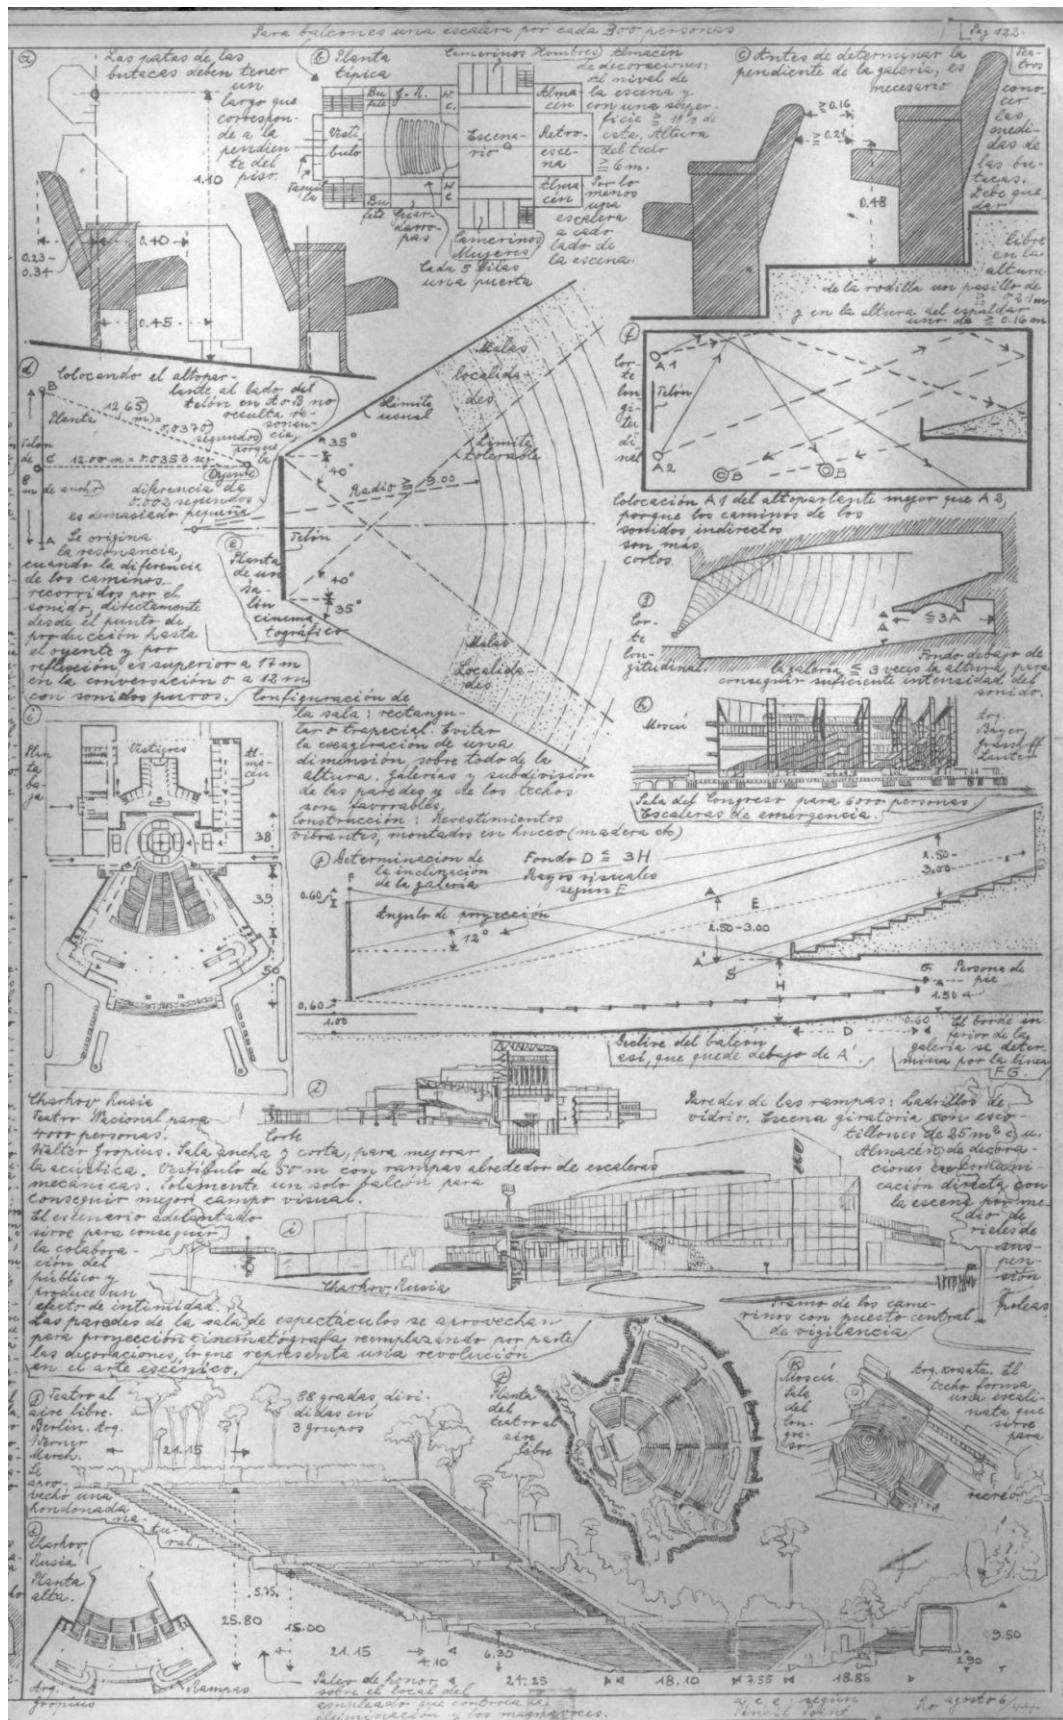 Para balcones una escalera por cada 300 personas
Pag 122
Teatros
a
Las patas de las
butacas deben tener
un
largo que
correspon-
de a la
pendien-
te del
piso.
1.10
0.40
0.23-
0.34
0.45
b Planta
típica
Camerinos Hombres
Bufete
W.C.
Vestí
bulo
Escena-
rio
Alma
cén
Retro-
esce-
na
Alma
cén
Taquilla
Bufete
Guar-
darro-
pas
Camerinos
Mujeres
Cada 5 filas
una puerta
Almacén
de decoraciones:
Al nivel de
la escena y
con una super-
ficie
esta. Altura
del techo
≧ 6 m.
Por lo
menos
una
escalera
a cado
lado de
la escena.
c Antes de determinar la
pendiente de la galería, es
necesario
cono-
cer
las
medi-
das de
las bu-
tacas.
Debe que
dar
libre
en la
altura
de la rodilla un pasillo de
≧ 0.21 m
y en la altura del espaldar
uno de ≧ 0.16 m
≧ 0.16
≧ 0.21
0.48
d
Colocando el altopar-
lante al lado del
telón en A o B no
resulta re-
sonan-
cia,
porque
la
diferencia de
0.002 segundos
es demasiado pequeña
B
Planta
12.65
m =
0.0370
segundos
Telón
de
8
m de ancho
C
12.00 m = 0.0353 se
Oyente
A
Se origina
la resonancia,
cuando la diferencia
de los caminos
recorridos por el
sonido, directamente
desde el punto de
producción hasta
el oyente y por
reflexión es superior a 17 m
en la conversación o a 12 m
con sonidos puros.
e
Planta
de un
sa-
lón
cinema
tográfico
Telón
Malas
localida-
des
Límite
usual
Límite
tolerable
Radio ≧ 9.00
35°
40°
40°
35°
Malas
Localida-
des
f
Cor-
te
lon-
gi-
tu-
di-
nal
A1
Telón
A2
B
B
Colocación A1 del altoparlante mejor que A2,
porque los caminos de los
sonidos indirectos
son más
cortos.
g
Cor-
te
lon-
gitudinal.
A
≦ 3A
Fondo debajo de
la galería ≦ 3 veces la altura, para
conseguir suficiente intensidad del
sonido.
Configuración de
la sala: rectangu-
lar o trapecial. Evitar
la exageración de una
dimensión, sobre todo de la
altura. Galerías y subdivisión
de las paredes y de los techos
son favorables.
Construcción: Revestimientos
vibrantes, montados en hueco (madera etc)
h
Moscú
Arq.
Sala del Congreso para 6000 personas
Escaleras de emergencia.
i
Plan
ta
ba-
ja
Vestigres
Al-
ma-
cén
38
39
50
j Determinacion de
la inclinación
de la galería
Fondo D ≦ 3H
Rayos visuales
según E
F
0.60
Angulo de proyección
12°
A
E
2.50-
3.00
2.50-3.00
A'
S
H
G
Persona de
pie
1.50
0.60
1.00
D
0.60
Declive del balcón
así, que quede debajo de A'.
El borde in-
ferior de la
galería se deter-
mina por la línea
FG.
i
Corte
Charkov Rusia
Teatro Nacional para
4000 personas.
Walter Gropius. Sala ancha y corta, para mejorar
la acústica. Vestíbulo de 50 m con rampas alrededor de escaleras
mecánicas. Solamente un solo balcón para
conseguir mejor campo visual.
El escenario adelantado
sirve para conseguir
la colabora-
ción del
público y
produce un
efecto de intimidad.
Las paredes de la sala de espectáculos se aprovechan
para proyección cinematógrafa reemplazando por parte
las decoraciones, lo que representa una revolución
en el arte escénico.
Paredes de las rampas: Ladrillos de
vidrio. Escena giratoria con esco-
tillones de 25 m² c/u.
Almacén de decora-
ciones en comuni-
cación directa con
la escena por me-
dio de
rieles de
sus-
pen-
sión
y poleas
i
Charkov, Rusia
Tramo de los came-
rinos con puesto central
de vigilancia
j Teatro al
aire libre.
Berlin. Arq.
Werner
March.
Se
apro-
vechó una
hondonada
na-
tu-
ral.
21.15
88 gradas, divi-
didas en
3 grupos
Planta
del
teatro al
aire
libre
k
Moscú.
Sala
del
Con-
gre-
so
El
techo forma
una escali-
nata que
sirve
para
recreo.
i
Charkov
Rusia
Planta
alta.
Arq.
Gropius
Rampas
5.75
25.80
15.00
21.15
4.10
6.30
24.25
18.10
7.55
18.85
2.90
9.50
Palco de honor,
sobre el local del
empleado que controla la
iluminación y los magnavoces.
a, c, e, según
Pencil Point
Ro agosto 6/44